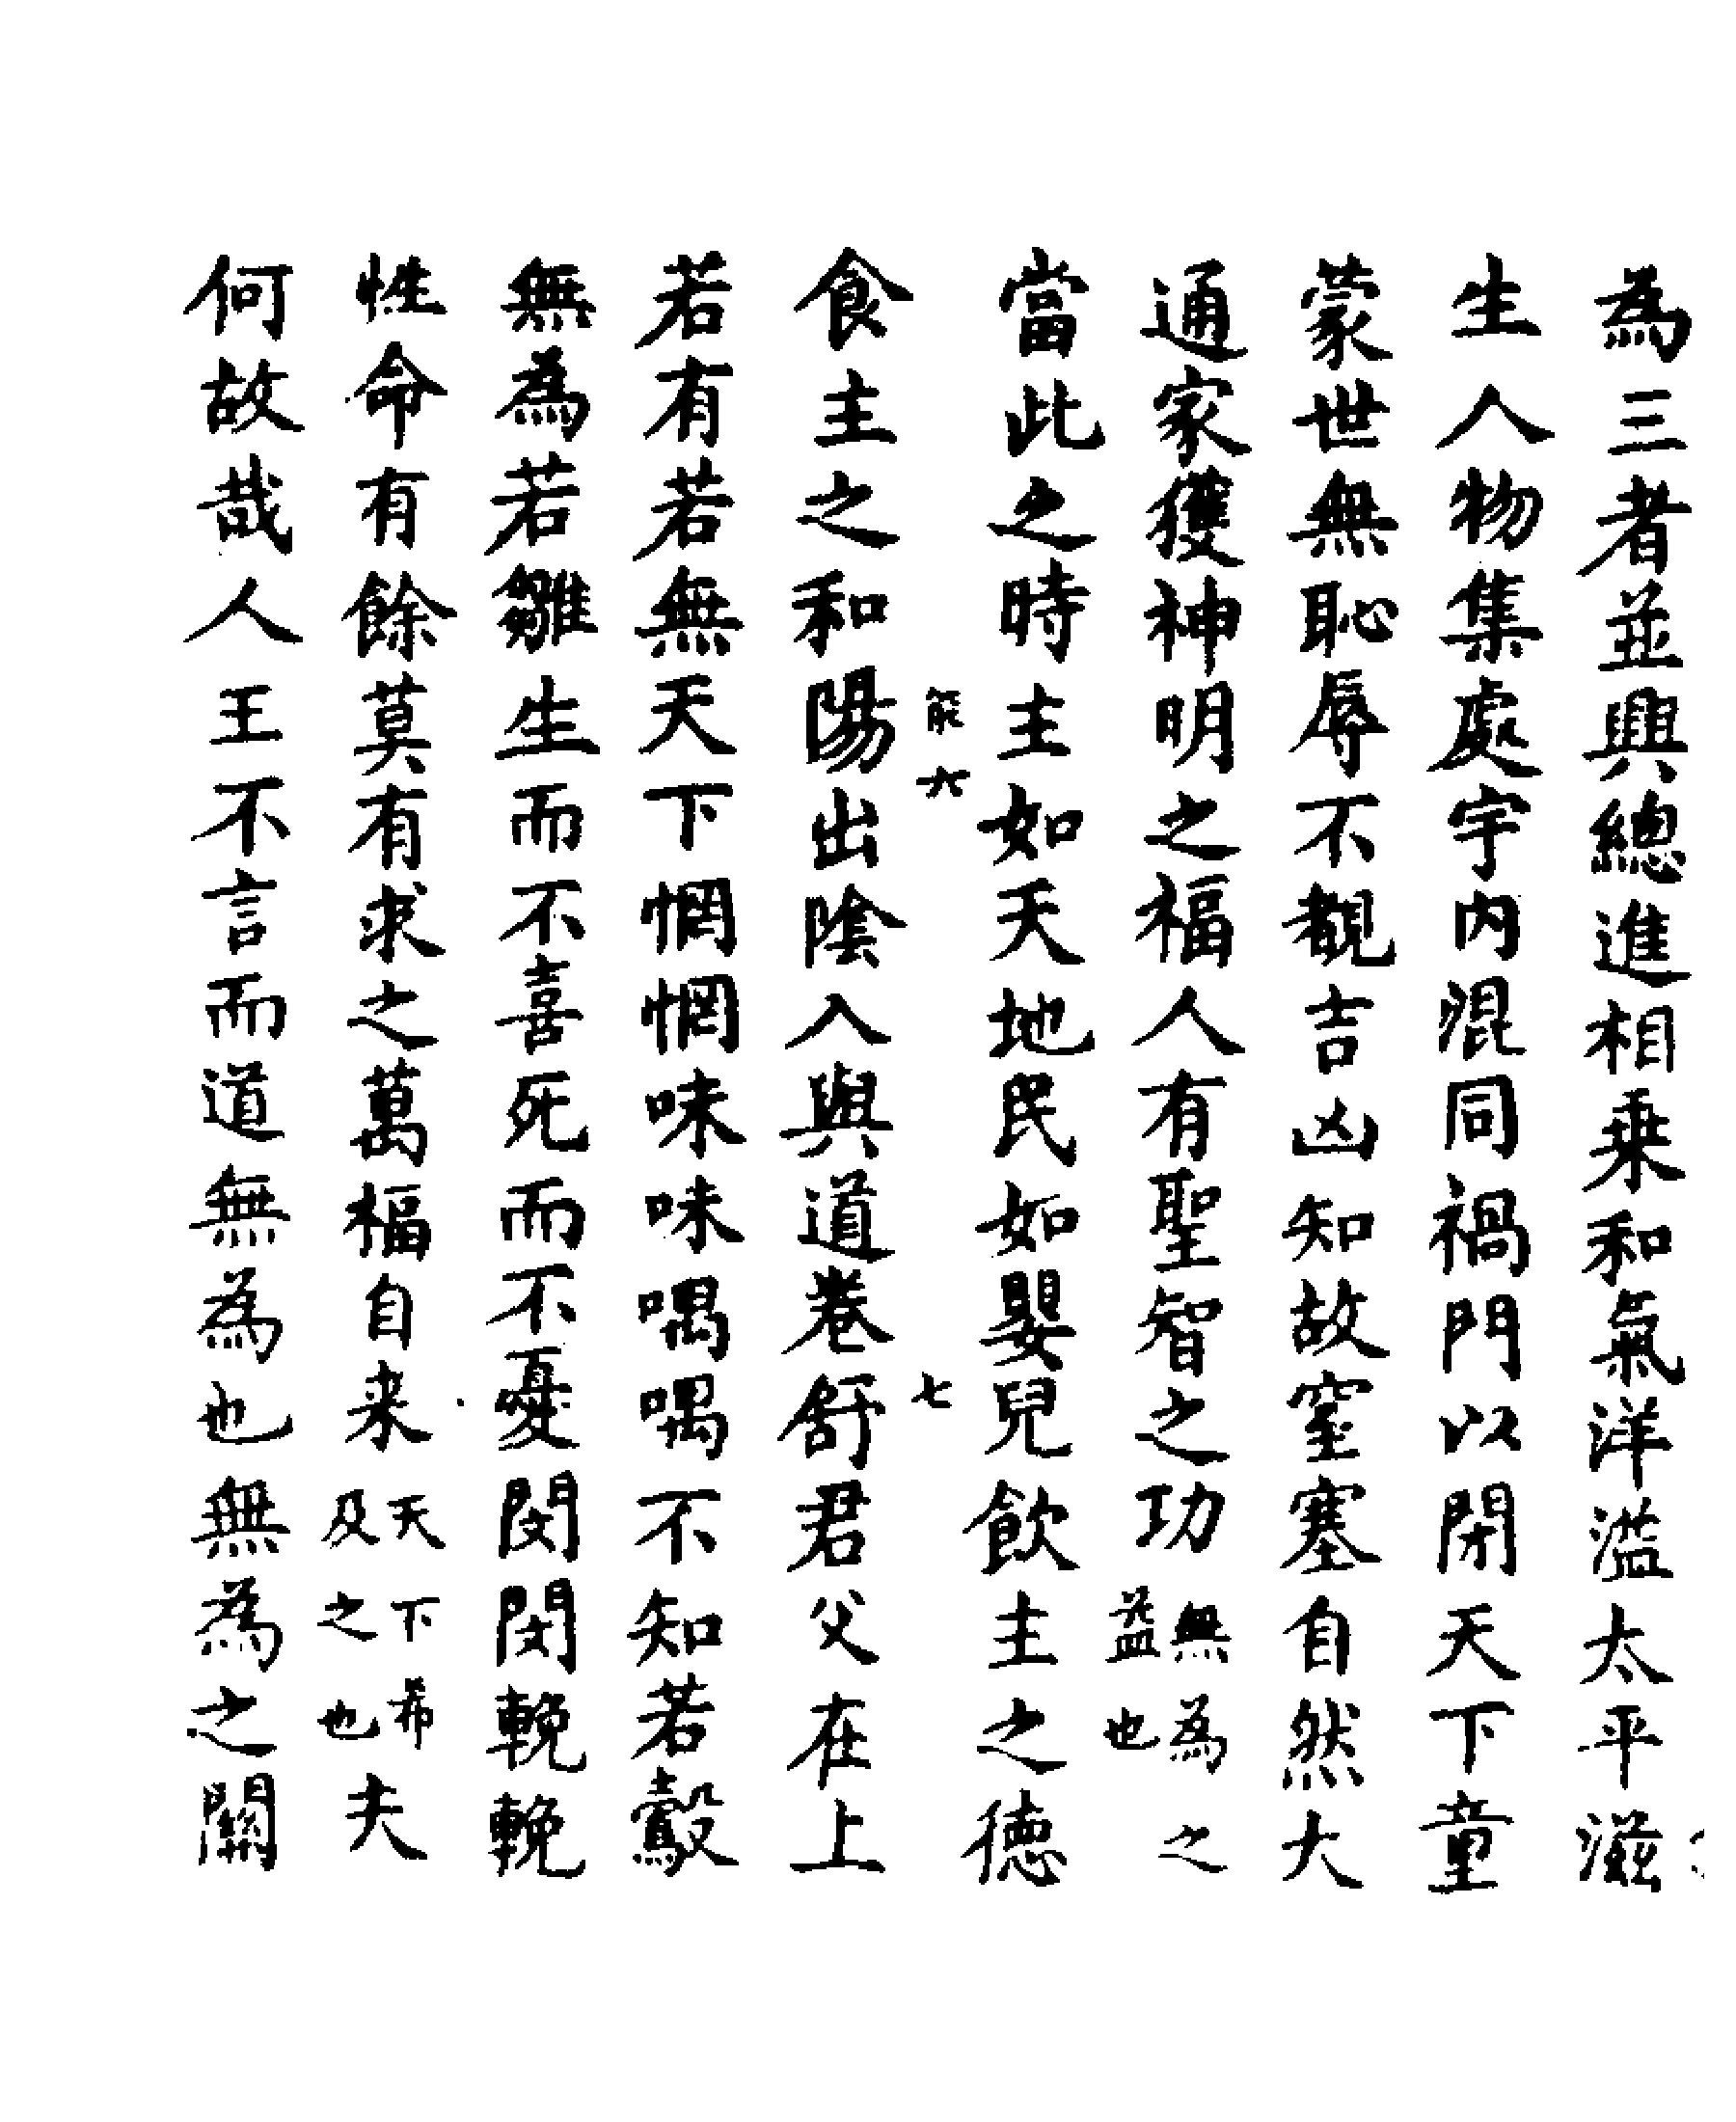 為三者並興總進相乗和氣洋溢太平滋
生人物集處宇内混同禍門以閉天下童
蒙世無恥辱不覩吉凶知故窒塞自然大
通家獲神明之福人有聖智之功無為之益也
當此之時主如天地民如嬰兒飲主之德
能六 七
食主之和陽出陰入與道卷舒君父在上
若有若無天下惘惘味味喁喁不知若鷇
無為若雛生而不喜死而不憂閔閔輓輓
性命有餘莫有求之萬福自来天下希及之也夫
何故哉人王不言而道無為也無為之關